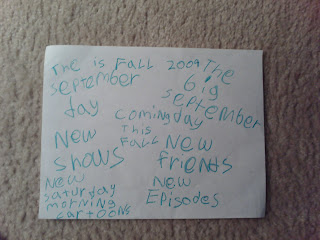 The is Fall 2009 The
September big
day September
coming day
This
Fall
New New
shows friends
New New
saturday Episodes
morning
cartoons